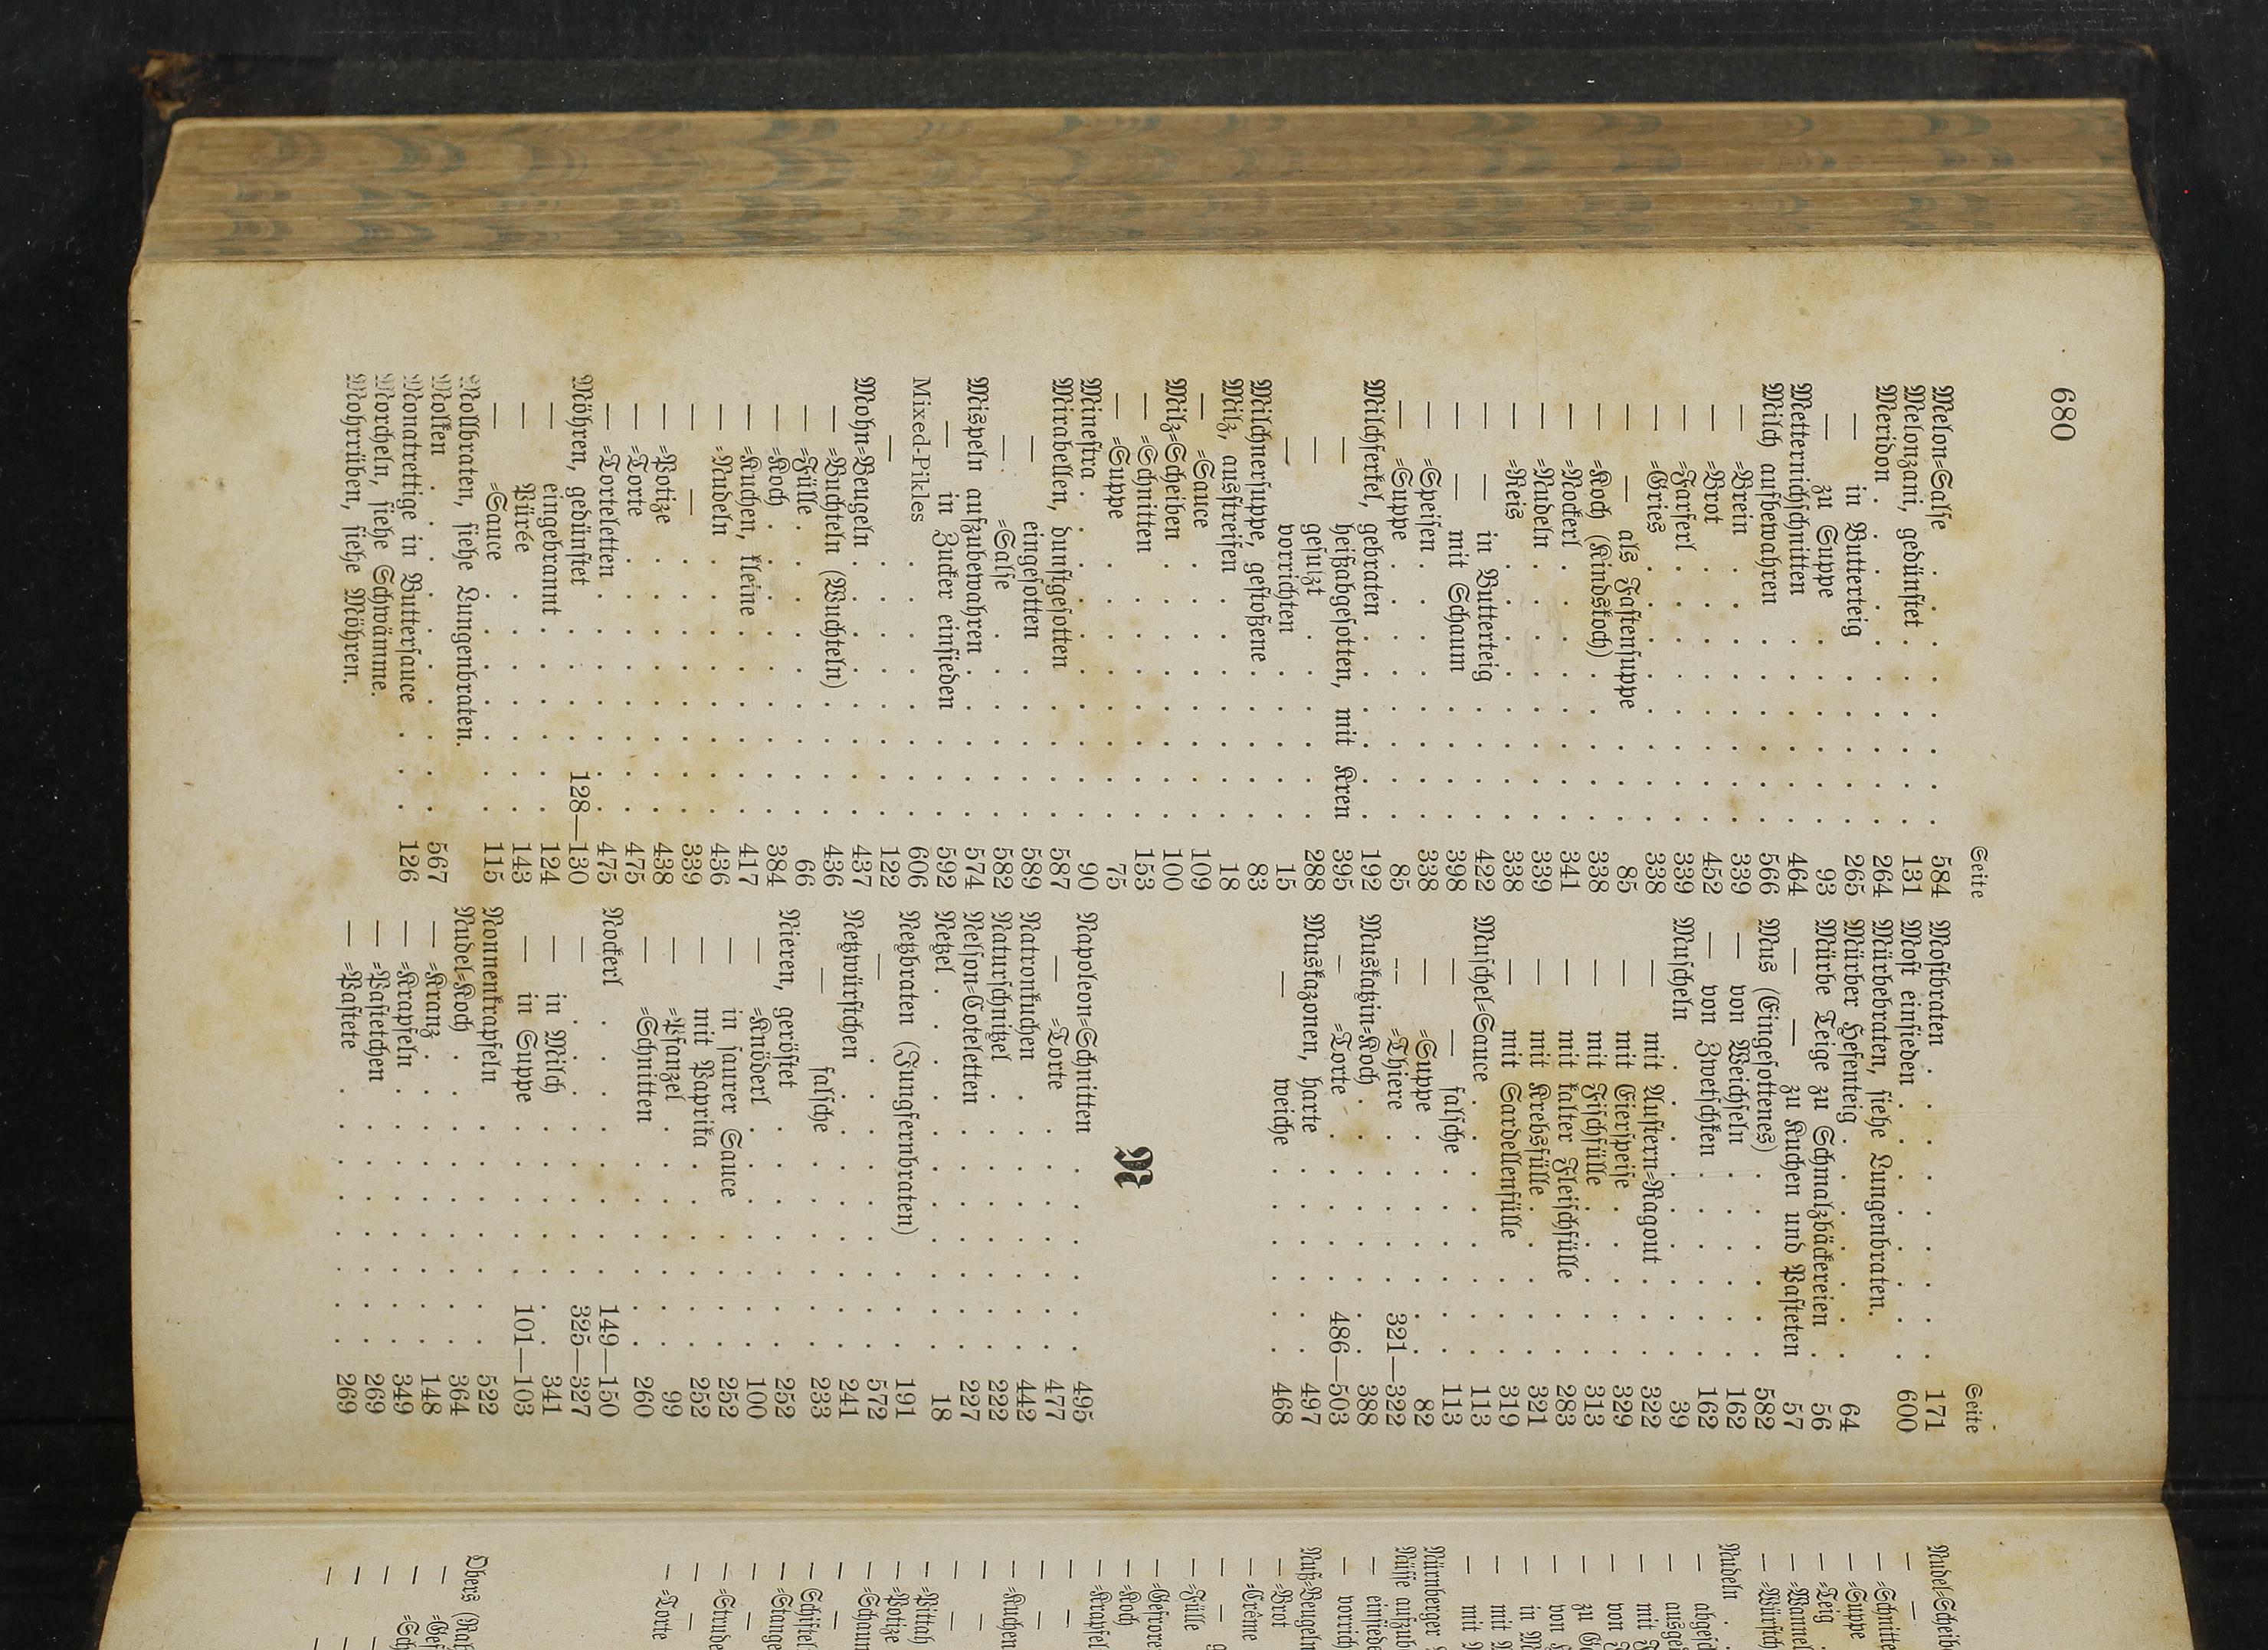 680
Seite
Melon=Salse . . . . . . 584
Melonzani, gedünstet . . . . . 131
Meridon . . . . . . . 264
— in Butterteig . . . . . 265
— zu Suppe . . . . . 93
Metternichschnitten . . . . . 464
Milch aufbewahren . . . . . 566
— =Brein . . . . . . 339
— =Brot . . . . . . 452
— =Farferl . . . . . . 339
— =Gries . . . . . . 338
— — als Fastensuppe . . . . 85
— =Koch (Kindskoch) . . . . 338
— =Nockerl . . . . . . 341
— =Nudeln . . . . . . 339
— =Reis . . . . . . 338
— — in Butterteig . . . . 422
— — mit Schaum . . . . 398
— =Speisen . . . . . . 338
— =Suppe . . . . . . 85
Milchferkel, gebraten . . . . . 192
— heißabgesotten, mit Kren . 395
— gesulzt . . . . . 288
— vorrichten . . . . . 15
Milchnersuppe, gestoßene . . . . 83
Milz, ausstreifen . . . . . 18
— =Sauce . . . . . . 109
Milz=Scheiben . . . . . . 100
— =Schnitten . . . . . . 153
— =Suppe . . . . . . 75
Minestra . . . . . . . 90
Mirabellen, dunstgesotten . . . . 587
— eingesotten . . . . . 589
— =Salse . . . . . . 582
Mispeln aufzubewahren . . . . 574
— in Zucker einsieden . . . . 592
Mixed-Pikles . . . . . . 606
— . . . . . . 122
Mohn=Beugeln . . . . . . 437
— =Buchteln (Wuchteln) . . . . 436
— =Fülle . . . . . . 66
— =Koch . . . . . . 384
— =Kuchen, kleine . . . . . 417
— =Nudeln . . . . . . 436
— — . . . . . . 339
— =Potize . . . . . . 438
— =Torte . . . . . . 475
— =Torteletten . . . . . 475
Möhren, gedünstet . . . . 128—130
— eingebrannt . . . . . 124
— Pürée . . . . . . 143
— =Sauce . . . . . . 115
Mollbraten, siehe Lungenbraten.
Molken . . . . . . . 567
Monatrettige in Buttersauce . . . 126
Morcheln, siehe Schwämme.
Mohrrüben, siehe Möhren.
Seite
Mostbraten . . . . . . 171
Most einsieden . . . . . . 600
Mürbebraten, siehe Lungenbraten.
Mürber Hefenteig . . . . . . 64
Mürbe Teige zu Schmalzbäckereien . 56
— — zu Kuchen und Pasteten . 57
Mus (Eingesottenes) . . . . . 582
— von Weichseln . . . . . 162
— von Zwetschken . . . . . 162
Muscheln . . . . . . . 39
— mit Austern=Ragout . . . 322
— mit Eierspeise . . . . . 329
— mit Fischfülle . . . . . 313
— mit kalter Fleischfülle . . . 283
— mit Krebsfülle . . . . . 321
— mit Sardellenfülle . . . . 319
Muschel=Sauce . . . . . . 113
— — falsche . . . . . 113
— =Suppe . . . . . . 82
— =Thiere . . . . . 321—322
Muskatzin=Koch . . . . . . 388
— =Torte . . . . . 486—503
Muskazonen, harte . . . . . 497
— weiche . . . . . . 468
N
Napoleon=Schnitten . . . . . 495
— =Torte . . . . . . 477
Natronkuchen . . . . . . 442
Naturschnitzel . . . . . . 222
Nelson=Coteletten . . . . . 227
Netzel . . . . . . . 18
Netzbraten (Jungfernbraten) . . . 191
— . . . . . . 572
Netzwürstchen . . . . . . 241
— falsche . . . . . . 233
Nieren, geröstet . . . . . . 252
— =Knöderl . . . . . . 100
— in saurer Sauce . . . . . 252
— mit Paprika . . . . . 252
— =Pfanzel . . . . . . 99
— =Schnitten . . . . . . 260
Nockerl . . . . . . 149—150
— . . . . . . 325—327
— in Milch . . . . . . 341
— in Suppe . . . . . 101—103
Nonnenkrapfeln . . . . . . 522
Nudel=Koch . . . . . . 364
— =Kranz . . . . . . 148
— =Krapfeln . . . . . . 349
— =Pastetchen . . . . . . 269
— =Pastete . . . . . . 269
Nudel=Scheib
— —
— =Schnitte
— =Suppe
— =Teig
— =Wannel
— =Würstch
Nudeln
— abgeschm
— ausgel
— mit
— von
— zu
— von
— in M
— mit
— mit
Nürnberger
Nüsse aufzub
— einsiede
— vorrich
Nuß=Beugeln
— =Brot
— =Crême
— =Fülle
— =Gefrore
— =Koch
— =Krapfel
— =Kuchen
— =Pittah
— =Potize
— =Schaum
— Schifftel
— =Stange
— =Strude
— =Torte
Obers (Rah
— =Gef
— =Sch